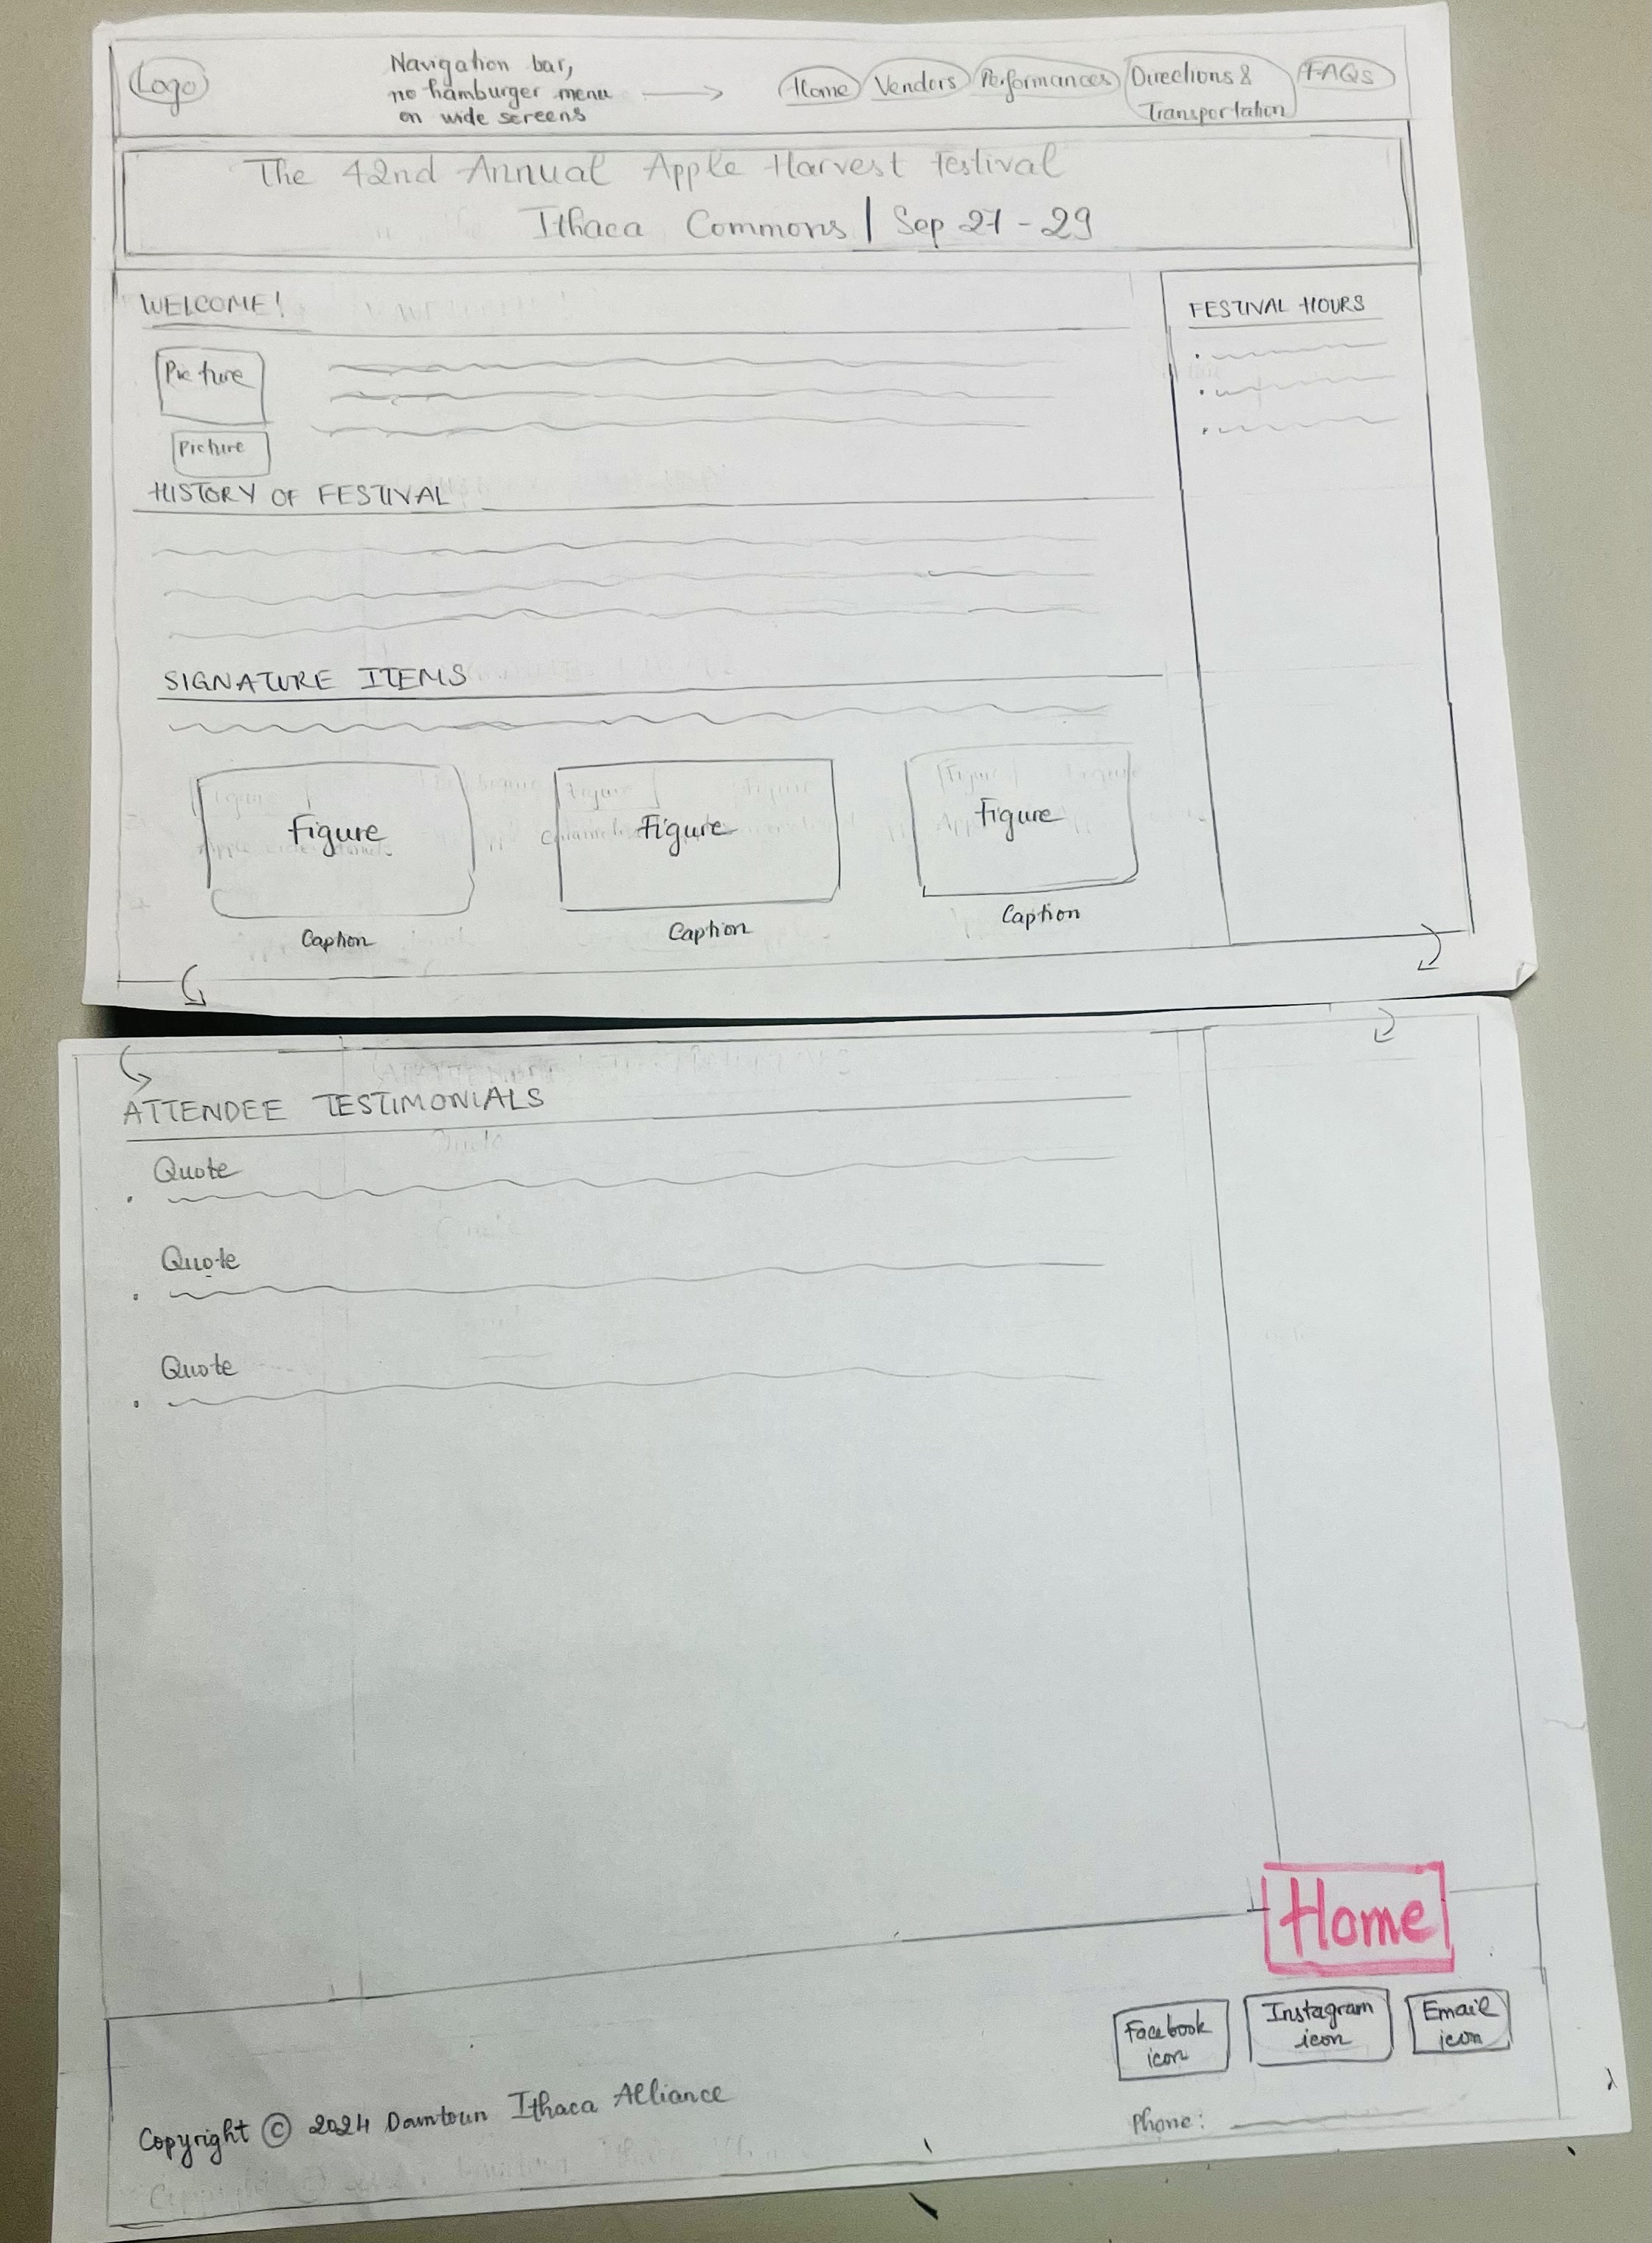 Logo
Navigation bar,
no hamburger menu
on wide screens
Home Vendors Performances Directions &
Transportation
FAQs
The 42nd Annual Apple Harvest Festival
Ithaca Commons | Sep 27 - 29
WELCOME!
Picture
Picture
HISTORY OF FESTIVAL
SIGNATURE ITEMS
Figure
Caption
Figure
Caption
Figure
Caption
FESTIVAL HOURS
ATTENDEE TESTIMONIALS
Quote
Quote
Quote
Home
Facebook
icon
Instagram
icon
Email
icon
Copyright © 2024 Downtown Ithaca Alliance
Phone: